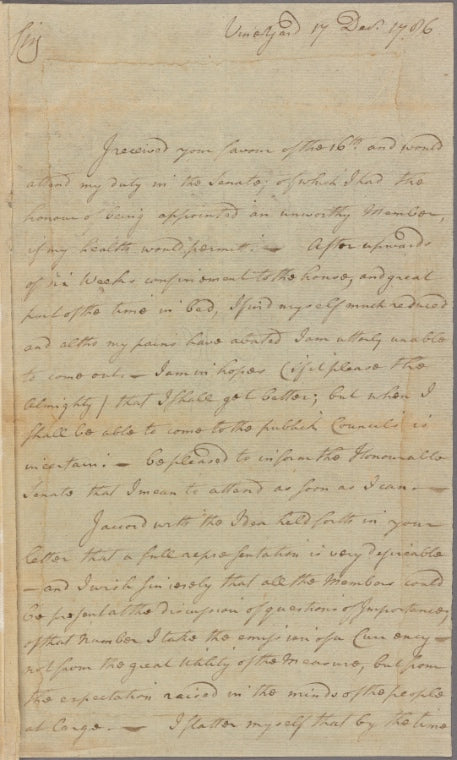 Sir
Vineyard 17 Decr. 1786
I received your favour of the 16th. and would
attend my duty in the Senate, of which I had the
honour of being appointed an unworthy Member,
if my health would permit: — After upwards
of six Weeks confinement to the house, and great
part of the time in bed, I find myself much reduced
and altho my pains have abated I am utterly unable
to come out. — I am in hopes (if it please the
Almighty) that I shall get better; but when I
shall be able to come to the publick Councils is
uncertain. — be pleased to inform the Honourable
Senate that I mean to attend as soon as I can. —
I accord with the Idea held forth in your
letter that a full representation is very desireable
— and I wish sincerely that all the Members could
be present at the discussion of questions of Importance,
of that Number I take the emission of a Currency —
not from the great Utility of the Measure, but from
the expectation raised in the minds of the people
at Large. — I flatter myself that by the time